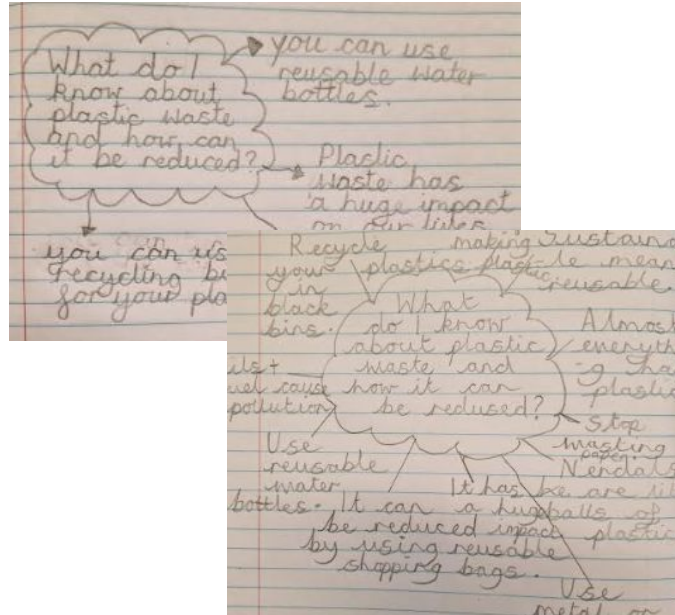 What do I
know about
plastic waste
and how can
it be reduced?
you can use
reusable water
bottles.
Plastic
waste has
a huge impact
on our lives
you can
recycling
for your
Recycle
your plastics
in
black
bins.
making plastic
plastic
mean
reusable.
What
do I know
about plastic
waste and
how it can
be redused?
Almost
everyth
-g
plastic
cause
pollution
Stop
wasting
paper.
Use
reusable
water
bottles.
It can
be reduced
by using reusable
shopping bags.
It has
a huge
impact
Nerdals
are
balls of
plastic
Use
metal or